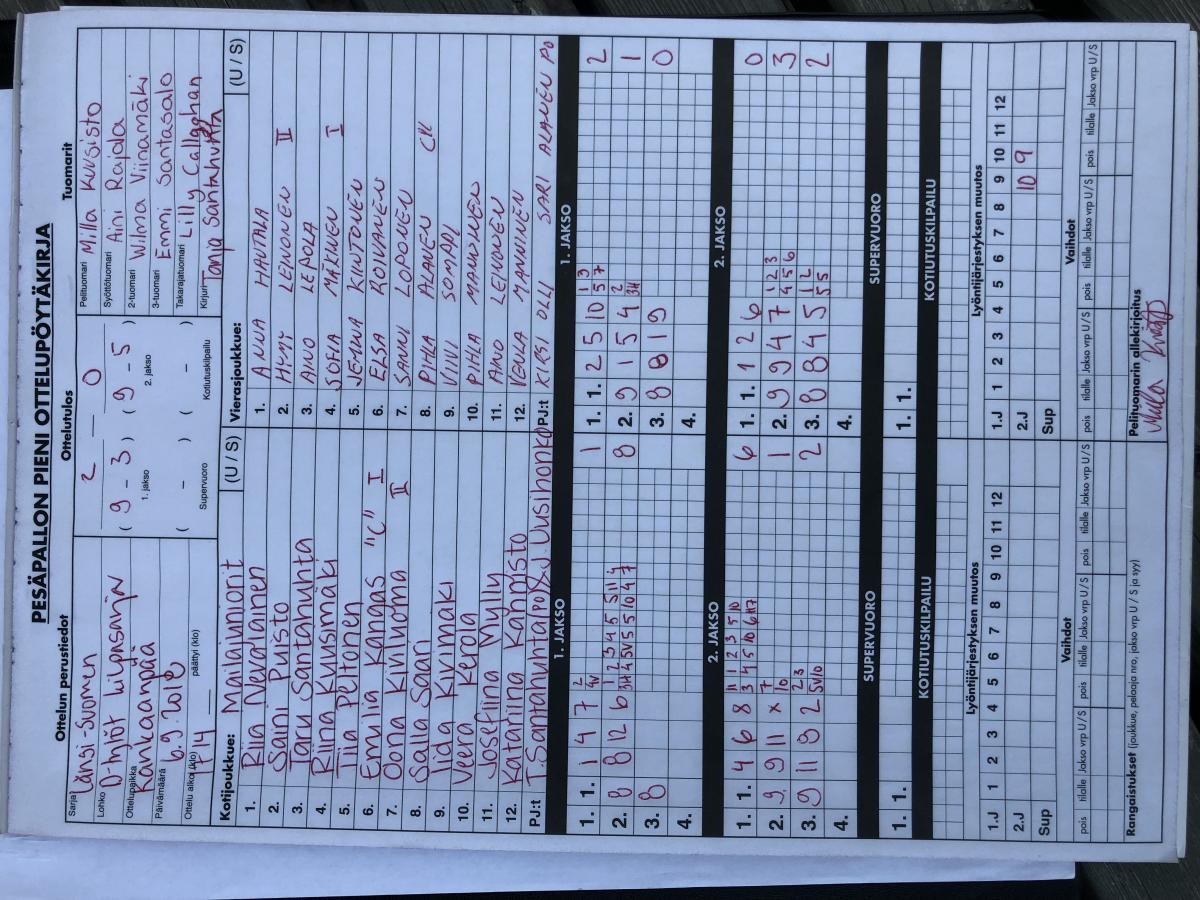 PESÄPALLON PIENI OTTELUPÖYTÄKIRJA
Ottelun perustiedot
Sarja Länsi-Suomen
Lohko D-tytöt
Ottelupaikka Kankaanpää
Päivämäärä 6.9.2018
Ottelu alkoi (klo) 1714 päättyi (klo)
Ottelutulos
2 – 0
( 9 – 3 ) ( 9 – 5 )
1. jakso 2. jakso
( – ) ( – )
Supervuoro Kotiutuskilpailu
Tuomarit
Pelituomari Milla Kuusisto
Syöttötuomari Aini Rajala
2-tuomari Wilma Viinamäki
3-tuomari Emmi Santasalo
Takarajatuomari Lilly Callaghan
Kirjuri Tanja Santahuhta
Kotijoukkue: Mailajuniorit (U / S)
1. Riia Nevalainen
2. Saini Puisto
3. Taru Santahuhta
4. Riina Kuusmäki
5. Tiia Peltonen
6. Emilia Kangas "C" I
7. Oona Kiviluoma II
8. Salla Saari
9. Iida Kivimäki
10. Veera Kerola
11. Josefiina Mylly
12. Katariina Kannisto
PJ:t T. Santahuhta (PO) & J. Uusihonko
Vierasjoukkue: (U / S)
1. ANNA HAUTALA
2. LEINONEN II
3. AINO LEPOLA
4. SOFIA MÄKINEN I
5. JENNA KINTONEN
6. ELSA ROIVANEN
7. SANNI LOPONEN
8. PIHLA ALANEN CK
9. VIIVI SOMPPI
10. PIHLA MANNINEN
11. AINO LEINONEN
12. VENLA MANNINEN
PJ:t KIRSI OLLI SARI ALANEN PO
1. JAKSO
1. 1. 1 4 7 2 4V 1
2. 8 12 6 1 2 3 4 5 5 11 4 8
3. 8
4.
1. JAKSO
1. 1. 2 5 10 1 3 5 7 2
2. 9 1 5 4 2 3H 1
3. 8 8 1 9 0
4.
2. JAKSO
1. 1. 4 6 8 11 1 2 3 5 10 6
2. 9 9 11 x 7 10 1
3. 9 11 8 2 2 3 5V 10 2
4.
2. JAKSO
1. 1. 1 2 6 0
2. 9 9 4 7 1 2 3 4 5 6 3
3. 8 8 4 5 1 2 5 5 2
4.
SUPERVUORO
1. 1.
SUPERVUORO
1. 1.
KOTIUTUSKILPAILU
KOTIUTUSKILPAILU
Lyöntijärjestyksen muutos
1.J 1 2 3 4 5 6 7 8 9 10 11 12
2.J
Sup
Lyöntijärjestyksen muutos
1.J 1 2 3 4 5 6 7 8 9 10 11 12
2.J 10 9
Sup
Vaihdot
pois tilalle Jakso vrp U / S pois tilalle Jakso vrp U / S pois tilalle Jakso vrp U / S
Vaihdot
pois tilalle Jakso vrp U / S pois tilalle Jakso vrp U / S pois tilalle Jakso vrp U / S
Rangaistukset (joukkue, pelaaja nro, jakso vrp, U / S ja syy)
Pelituomarin allekirjoitus
Milla